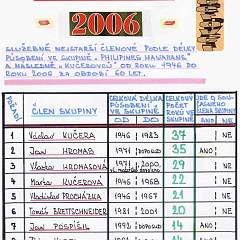 2006
SLUŽEBNĚ NEJSTARŠÍ ČLENOVÉ PODLE DÉLKY
PŮSOBENÍ VE SKUPINĚ „PHILIPINES HAVAIIANS"
A NÁSLEDNĚ „KUČEROVCI" OD ROKU 1946 DO
ROKU 2006 ZA OBDOBÍ 60 LET.
POŘADÍ ČLEN SKUPINY CELKOVÁ DÉLKA PŮSOBENÍ VE SKUPINĚ CELKOVÝ POČET ROKŮ VE SKUPINĚ
OD DO ANO NE
1 Václav KUČERA 1946 1983 37 NE
2 Jan HROMAS 1971 35 ANO
3 Vlasta HROMASOVÁ 1971 29
4 Marta KUČEROVÁ 1946 1968 22 NE
5 Vlastislav PROCHÁZKA 1946 1967 21 NE
6 Tomáš BRETTSCHNEIDER 1981 2001 20 NE
7 Jan POSPÍŠIL 1992 14 ANO